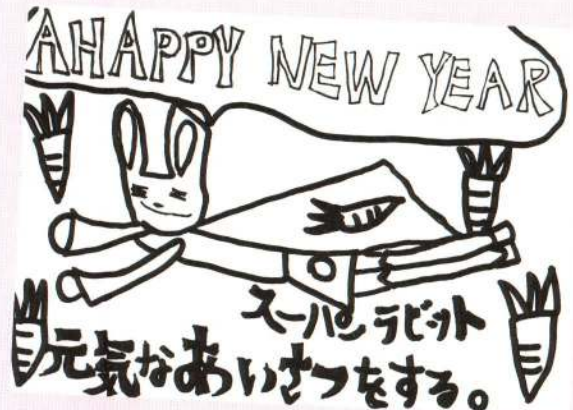 A HAPPY NEW YEAR
スーパーラビット
元気なあいさつをする。